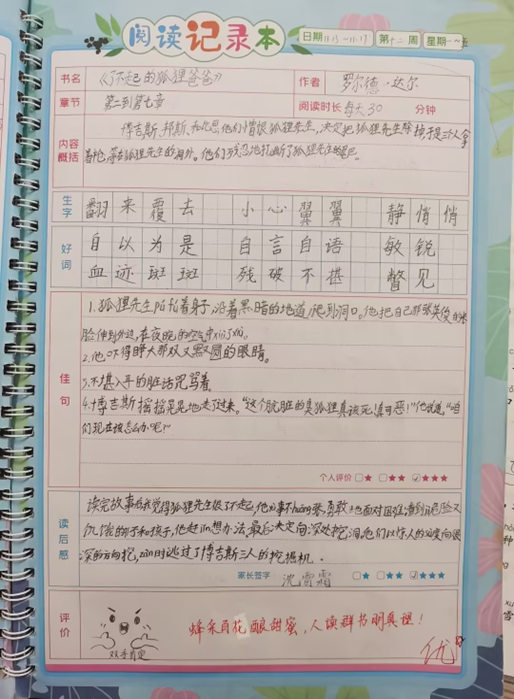 阅读记录本
日期11.13-11.17 第十二周 星期一~
书名 《了不起的狐狸爸爸》 作者 罗尔德·达尔
章节 第二到第七章 阅读时长 每天30 分钟
内容概括
博吉斯、邦斯、他们憎恨狐狸先生,决定把狐狸先生除掉,于是三个人拿
着枪,等在狐狸先生的洞外。他们残忍地打断了狐狸先生的尾巴。
生字
翻来覆去 小心翼翼 静悄悄
好词
自以为是 自言自语 敏锐
血迹斑斑 残破不堪 瞥见
佳句
1.狐狸先生pú私着身子,沿着黑暗的地道,爬到洞口。他把自己那张英俊的长
脸伸到外边,在夜晚的空气中xiù了xiù。
2.他吓得睁大那双又黑又圆的眼睛。
3.不堪入耳的脏话咒骂着
4.博吉斯摇摇晃晃地走了过来。“这个肮脏的臭狐狸真该死!真可恶!”他说道。“咱
们现在该怎么办呢?”
个人评价 ★ ★★ ★★★
读后感
读完故事后我觉得狐狸先生很了不起,他做事不huāng张,勇敢地面对困难,看到 危险又
饥饿的妻子和孩子,他赶jǐn想办法,最后决定向深处挖洞,他们以惊人的速度向很
深的方向挖,及时逃过了博吉斯三人的挖掘机.
家长签字 沈雪霜 ★ ★★ ★★★
评价
双手肯定
蜂采百花酿甜蜜,人读群书明真理!
优